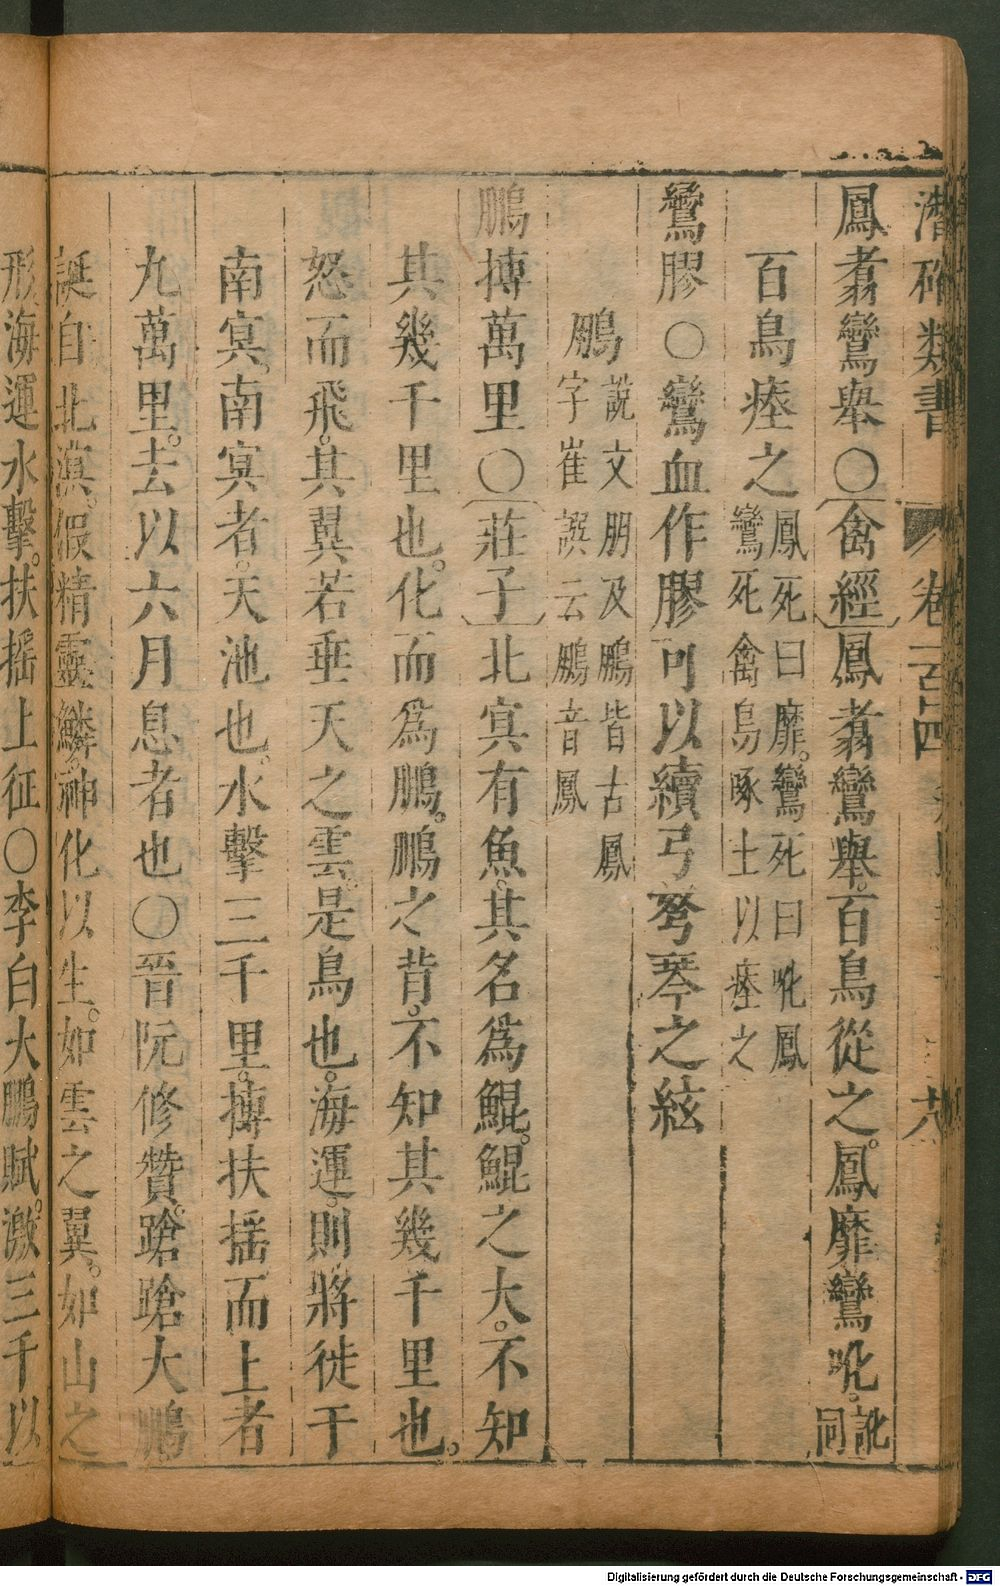 潛確類書
卷一百四
鳳翥鸞舉○禽經鳳翥鸞舉。百鳥從之。鳳靡鸞吪。訛同
百鳥瘞之鳳死曰靡。鸞死曰吪鳳鸞死禽鳥啄土以瘞之
鸞膠○鸞血作膠可以續弓弩琴之絃
鵬說文朋及鵬皆古鳳字崔譔云鵬音鳳
鵬摶萬里○莊子北㝠有魚。其名爲鯤。鯤之大。不知
其幾千里也。化而爲鵬。鵬之背。不知其幾千里也。
怒而飛。其翼若垂天之雲。是鳥也。海運。則將徙于
南㝠。南㝠者。天池也。水擊三千里。摶扶搖而上者
九萬里。去以六月息者也○晉阮修贊。蹌蹌大鵬
誕自北溟。假精靈鱗。神化以生。如雲之翼。如山之
形。海運水擊。扶搖上征○李白大鵬賦。激三千以
Digitalisierung gefördert durch die Deutsche Forschungsgemeinschaft - DFG